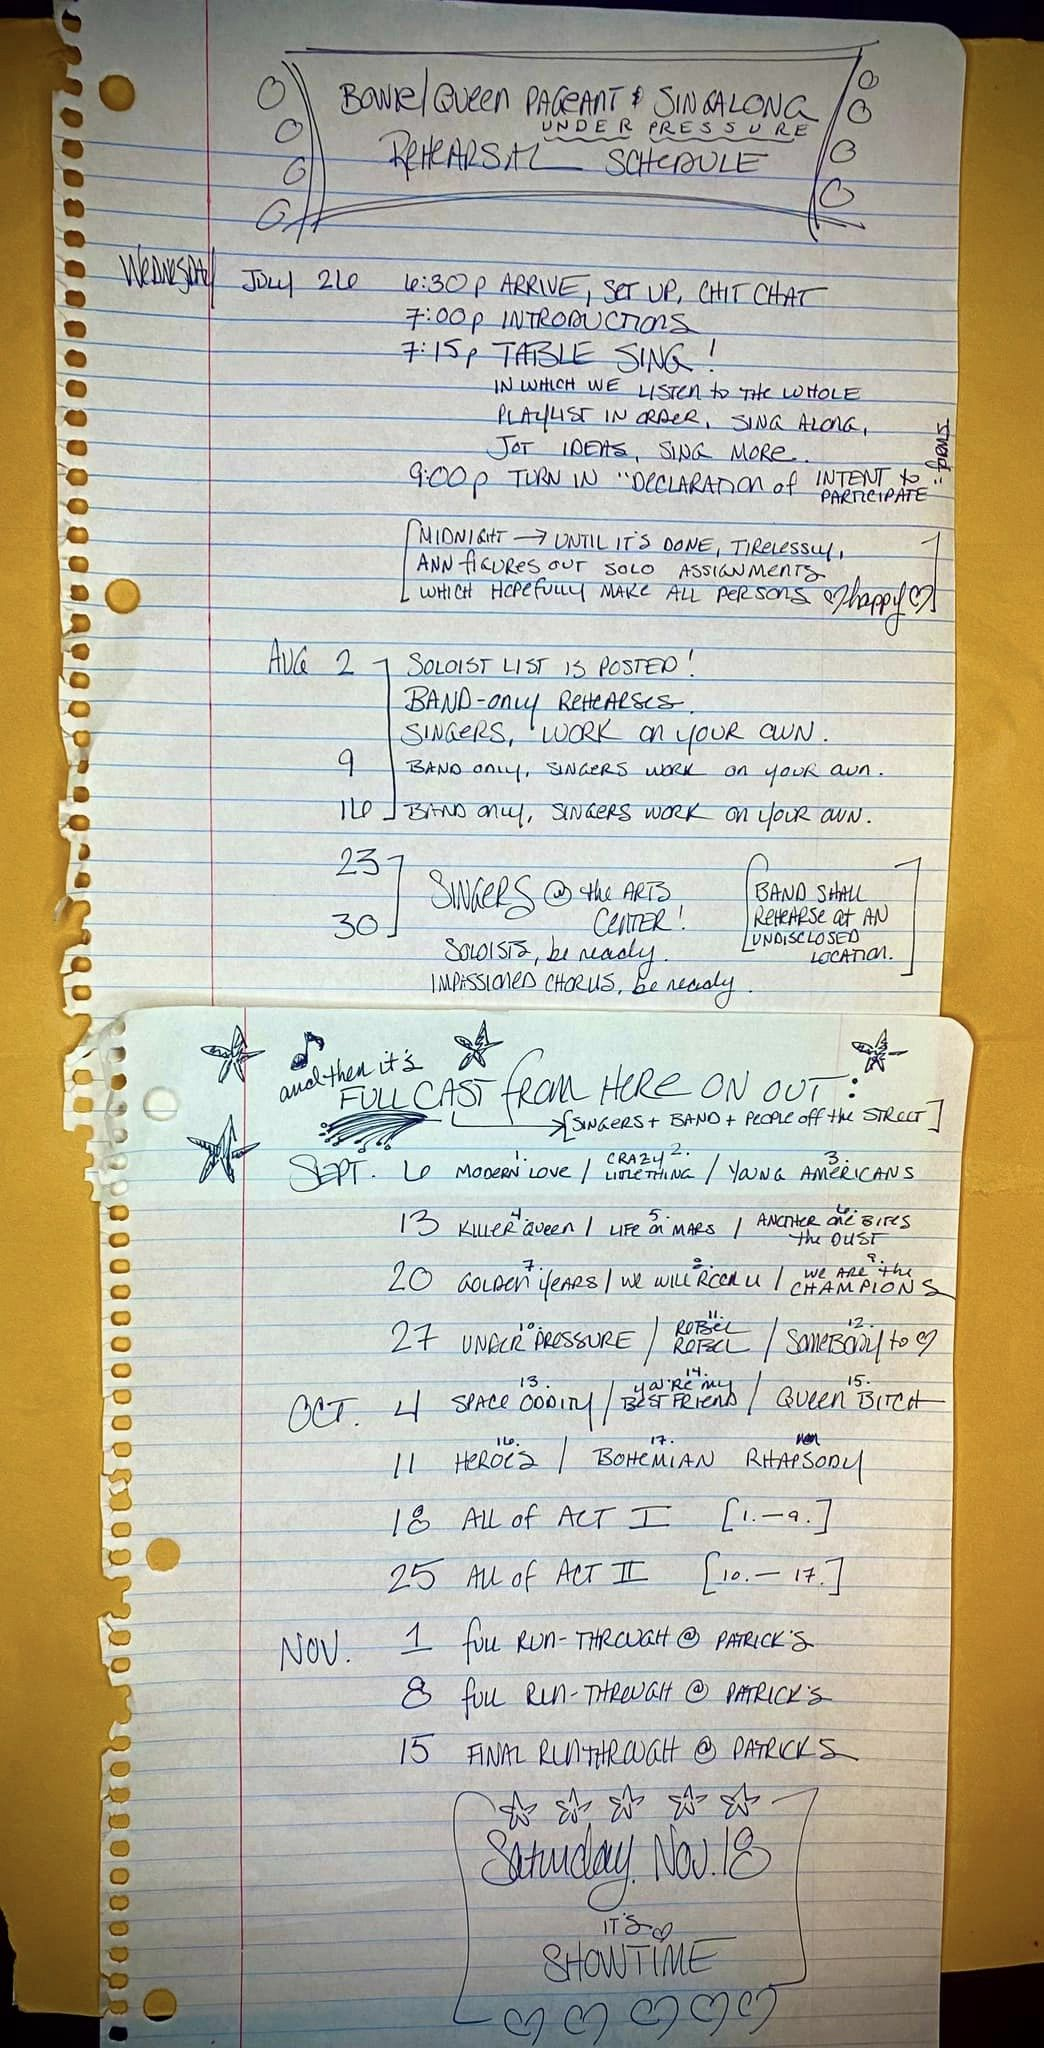 BOWIE/QUEEN PAGEANT & SINGALONG
UNDER PRESSURE
REHEARSAL SCHEDULE
WEDNESDAY JULY 26 6:30p ARRIVE, SET UP, CHIT CHAT
7:00p INTRODUCTIONS
7:15p TABLE SING!
IN WHICH WE LISTEN to THE WHOLE
PLAYLIST IN ORDER, SING ALONG,
JOT IDEAS, SING MORE..
9:00p TURN IN "DECLARATION of INTENT to
PARTICIPATE" FORMS
[MIDNIGHT → UNTIL IT'S DONE, TIRELESSLY,
ANN FIGURES OUT SOLO ASSIGNMENTS
WHICH HOPEFULLY MAKE ALL PERSONS ♡happy♡]
AUG 2 SOLOIST LIST IS POSTED!
BAND-only REHEARSES.
SINGERS, WORK on YOUR OWN.
9 BAND only, SINGERS WORK on YOUR OWN.
16 BAND only, SINGERS WORK on YOUR OWN.
23
30
SINGERS @ the ARTS
CENTER!
SOLOISTS, be ready.
IMPASSIONED CHORUS, be ready.
[BAND SHALL
REHEARSE at AN
UNDISCLOSED
LOCATION.]
and then it's
FULL CAST from HERE ON OUT:
[SINGERS + BAND + PEOPLE off the STREET]
SEPT. 6 1. MODERN LOVE / 2. CRAZY LITTLE THING / 3. YOUNG AMERICANS
13 4. KILLER QUEEN / 5. LIFE on MARS / 6. ANOTHER ONE BITES
the DUST
20 7. GOLDEN YEARS / 8. WE WILL ROCK U / 9. WE ARE the
CHAMPIONS
27 10. UNDER PRESSURE / 11. REBEL REBEL / 12. SOMEBODY to ♡
OCT. 4 13. SPACE ODDITY / 14. YOU'RE MY BEST FRIEND / 15. QUEEN BITCH
11 16. HEROES / 17. BOHEMIAN RHAPSODY
18 All of ACT I [1.—9.]
25 All of ACT II [10.—17.]
NOV. 1 full RUN-THROUGH @ PATRICK'S
8 full RUN-THROUGH @ PATRICK'S
15 FINAL RUNTHROUGH @ PATRICKS
Saturday. Nov. 18
IT'S
SHOWTIME